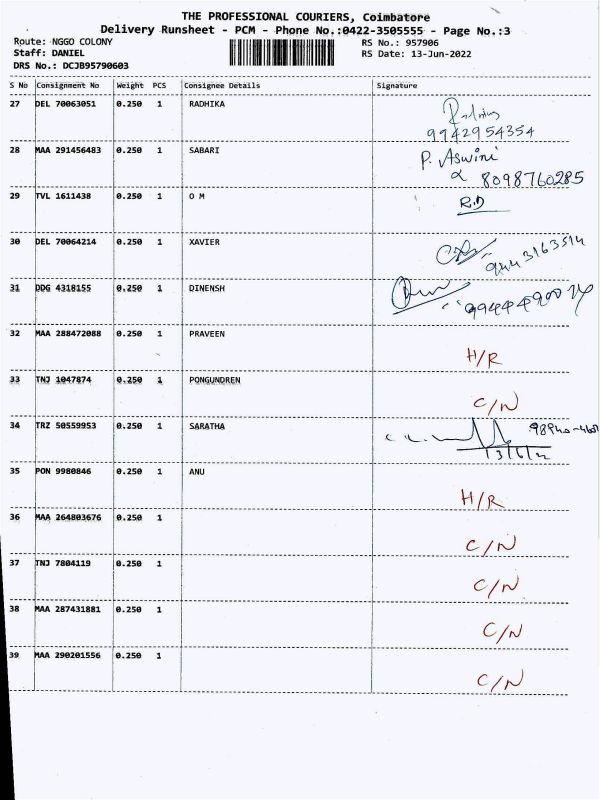 THE PROFESSIONAL COURIERS, Coimbatore
Delivery Runsheet - PCM - Phone No.:0422-3505555 - Page No.:3
Route: NGGO COLONY RS No.: 957906
Staff: DANIEL RS Date: 13-Jun-2022
DRS No.: DCJB95790603
S No Consignment No Weight PCS Consignee Details Signature
27 DEL 70063051 0.250 1 RADHIKA
9942954354
28 MAA 291456483 0.250 1 SABARI P. Aswini
8098760285
29 TVL 1611438 0.250 1 O M R.D
30 DEL 70064214 0.250 1 XAVIER 9443163514
31 DDG 4318155 0.250 1 DINENSH
32 MAA 288472088 0.250 1 PRAVEEN H/R
33 TNJ 1047874 0.250 1 PONGUNDREN C/N
34 TRZ 50559953 0.250 1 SARATHA
13/6/22
35 PON 9980846 0.250 1 ANU H/R
36 MAA 264803676 0.250 1 C/N
37 TNJ 7804119 0.250 1 C/N
38 MAA 287431881 0.250 1 C/N
39 MAA 290201556 0.250 1 C/N